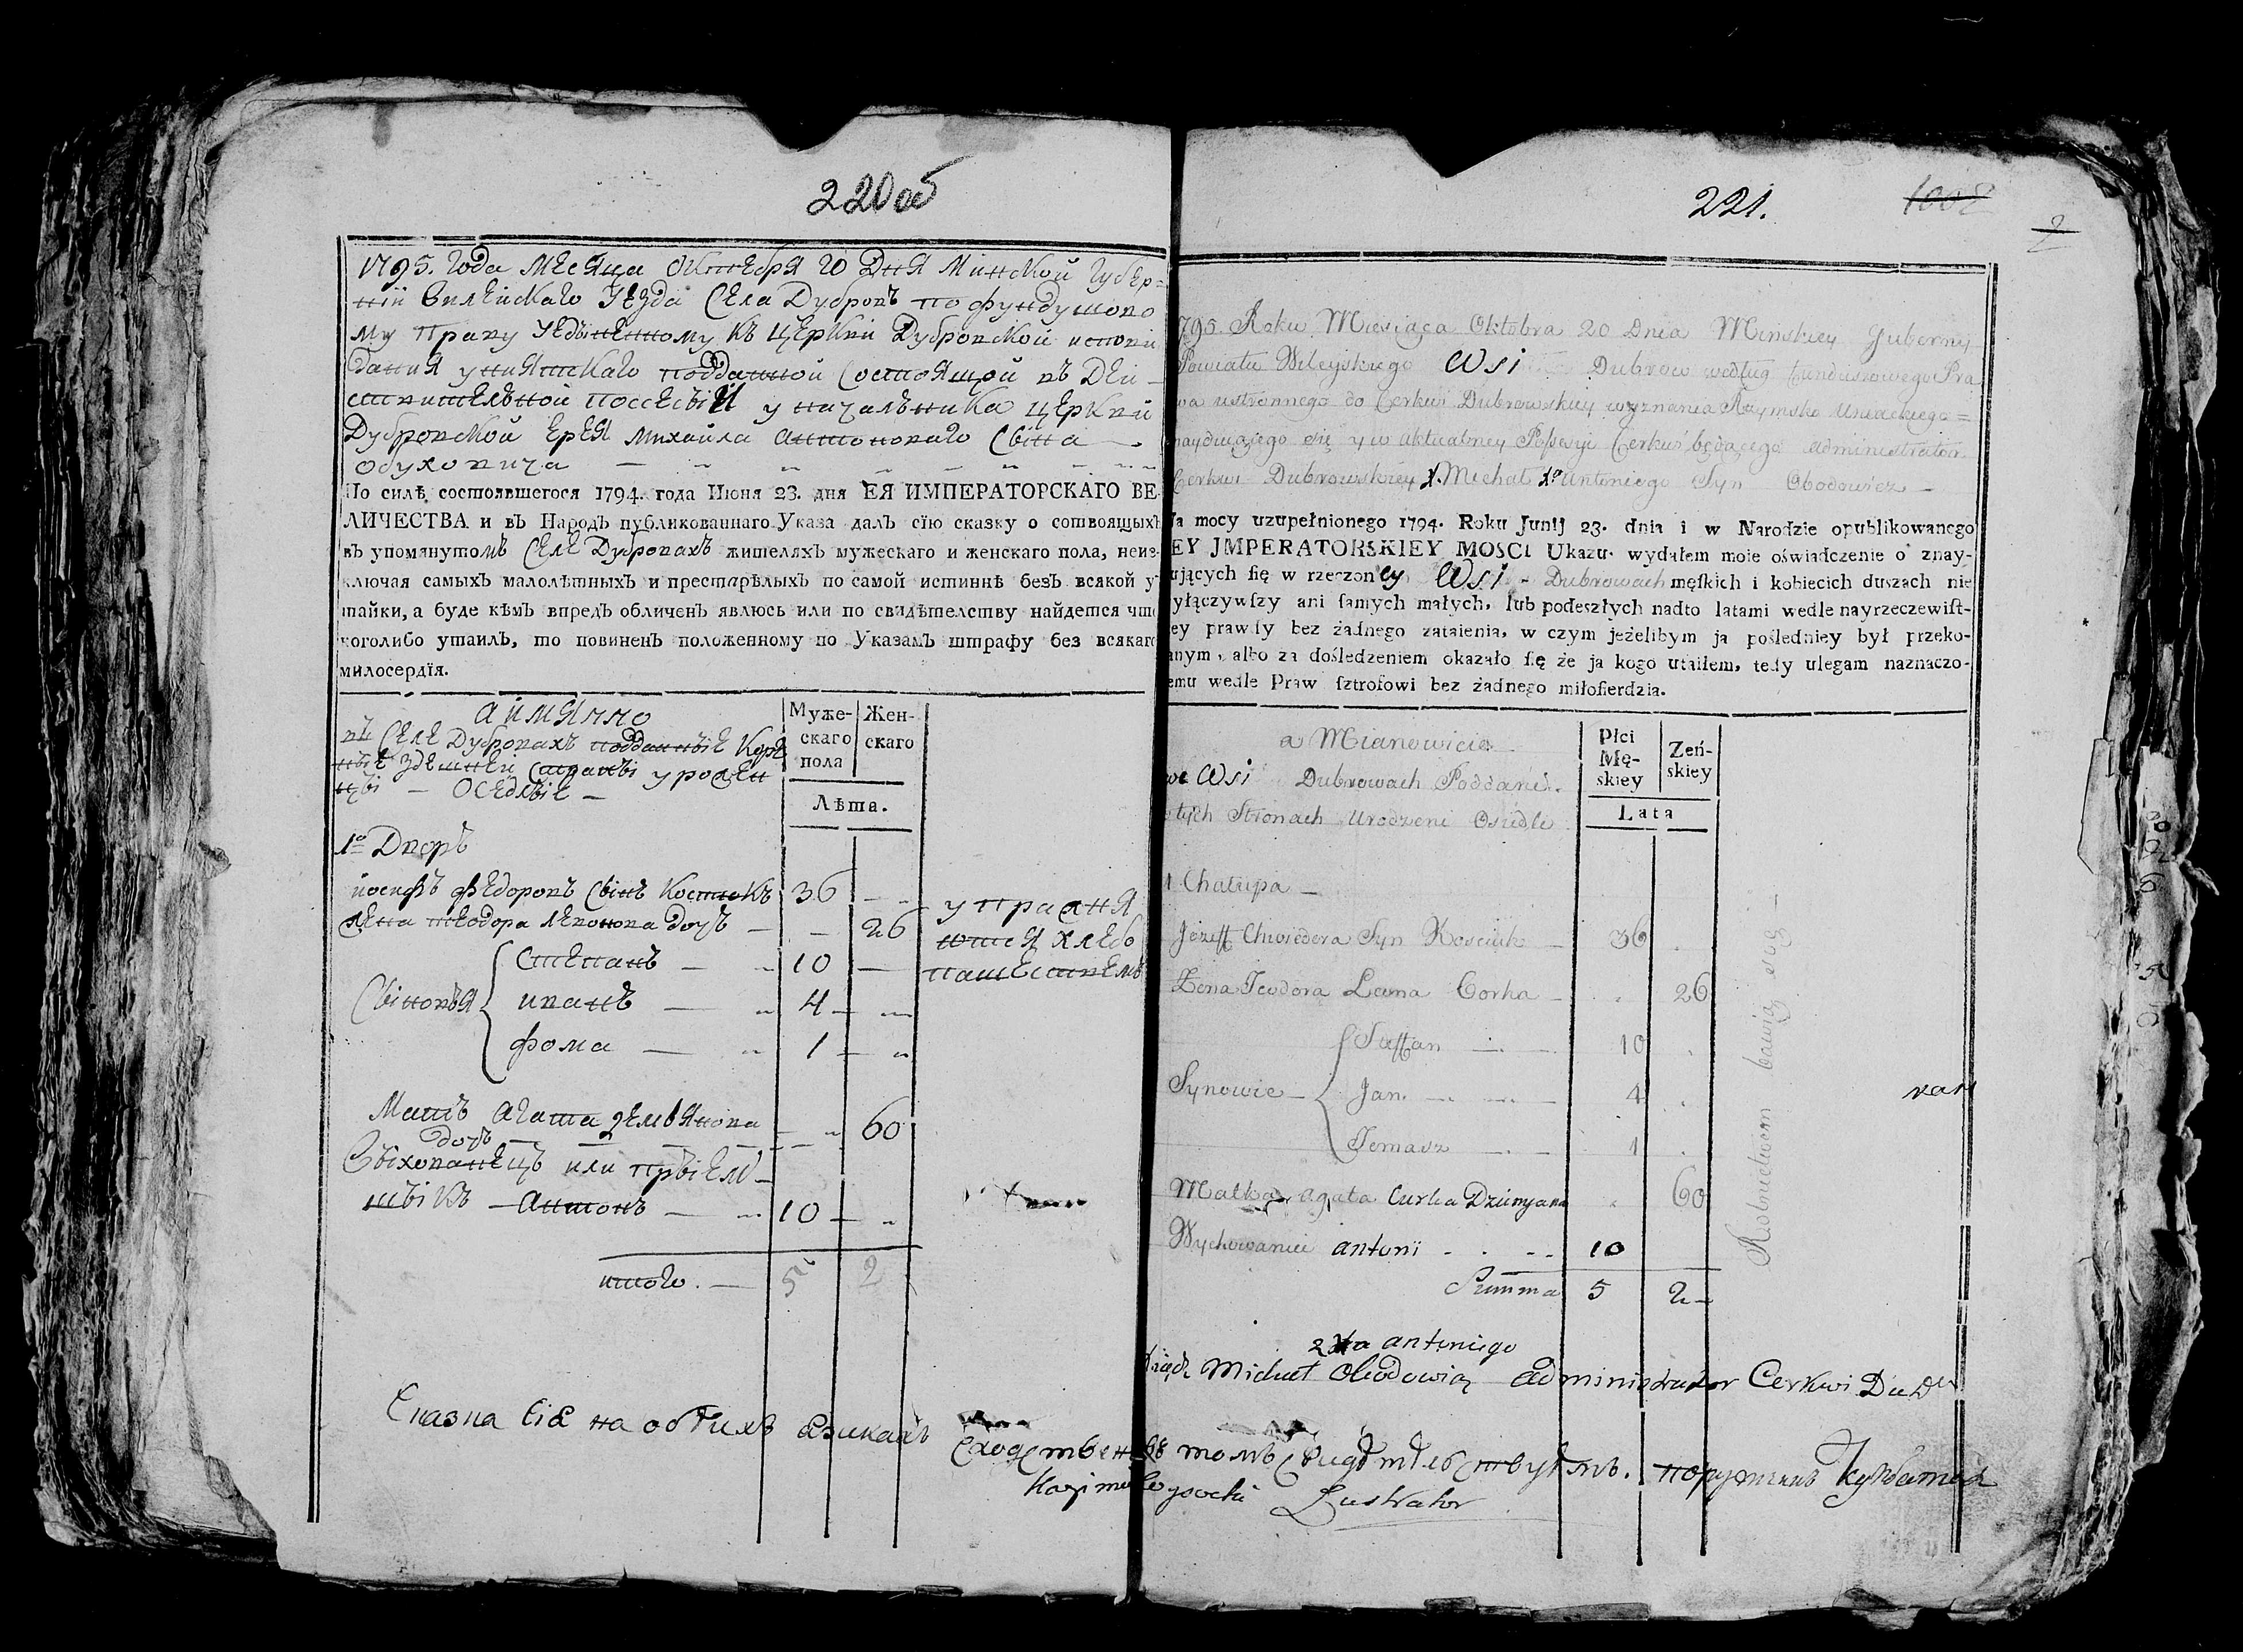 220об
1795. года месяца октебря 20 дня минской губер=
ніи вилейскаго уезда села Дубровъ по фундушово
му праву уедыненному къ церкви Дубровской испові
данія униятскаго подданной состоящой въ дей-
ствительной поссесіи у начальника церкви
Дубровской ерея михайла антоноваго сына
обуховича
По силѣ состоявшегося 1794. года Июня 23. дня ЕЯ ИМПЕРАТОРСКАГО ВЕ-
ЛИЧЕСТВА и въ Народъ публикованнаго Указа далъ сїю сказку о сотвоящыхъ
въ упомянутомъ селе Дубровахъ жителяхъ мужескаго и женскаго пола, неиз-
ключая самыхъ малолѣтныхъ и престарѣлыхъ по самой истиннѣ безъ всякой у
тайки, а буде кѣмъ впредъ обличенъ явлюсь или по свидѣтелству найдется что
коголибо утаилъ, то повиненъ положенному по Указамъ штрафу без всякаго
милосердїя.
аймянно
въ селе Дубровахъ подданные коре
ные здешней страны урожен
цы - оседлые -
Муже-скаго пола
Жен-скаго
Лѣта.
1о Дворъ
йосифъ федоровъ сынъ костюкъ 36
жена теодора левонова дочъ 26
сыновья
степанъ 10
иванъ 4
фома 1
упражня
ются хлебо
пашествемъ
Мать агата демьянова
дочъ 60
выхованецъ или прыем-
ныкъ антонъ 10
итого. 5 2
Сказка сія на обѣихъ
221.
1002
2
1795. Roku Miesiąca Oktobra 20 Dnia Minskiey Guberny
Powiatu Wileyskiego Wsi Dubrow według funduszowego Pra
wa ustronnego do Cerkwi Dubrowskiey wyznania Rzymsko Uniackiego=
znayduiącego się y w aktualney Possesyi Cerkwi będącego administratora
Cerkwi Dubrowskiey X. Michał Antoniego Syn Obodowicz
Na mocy uzupełnionego 1794. Roku Junij 23. dnia i w Narodzie opublikowanego
EY JMPERATORSKIEY MOSCI Ukazu. wydałem moie oświadczenie o znay-
ujących ſię w rzeczoney Wsi - Dubrowach męſkich i kobiecich duszach nie
yłączywſzy ani ſamych małych, lub podeszłych nadto latami wedle nayrzeczewiſt-
ey prawdy bez żadnego zataienia, w czym jeżelibym ja poſledniey był przeko-
anym, albo za dośledzeniem okazało ſię że ja kogo utaiłem, tedy ulegam naznaczo-
emu wedle Praw ſztrofowi bez żadnego miłoſierdzia.
a Mianowicie
we Wsi Dubrowach Poddani.
w tych Stronach Urodzeni Osiedli
Płci Mę-skiey
Zeń-skiey
Lata
1 Chałupa
Jozeff Chwiedora Syn Kosciuk 36
Zona Teodora Leona Corka 26
Synowie
Steffan 10
Jan 4
Tomasz 1
Matka agata Curka Dziemyana 60
Wychowaniec antoni 10
Summa 5 2
Rolnictwem bawią się
antoniego
Xiądz Michał Obodowicz administrator Cerkwi
томъ свидѣтельствуемъ. порутчикъ
Lustrator